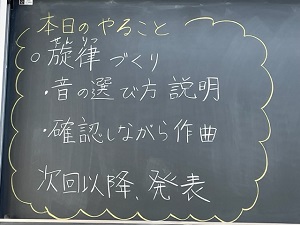 本日のやること
○旋律づくり
・音の選び方説明
・確認しながら作曲
次回以降、発表